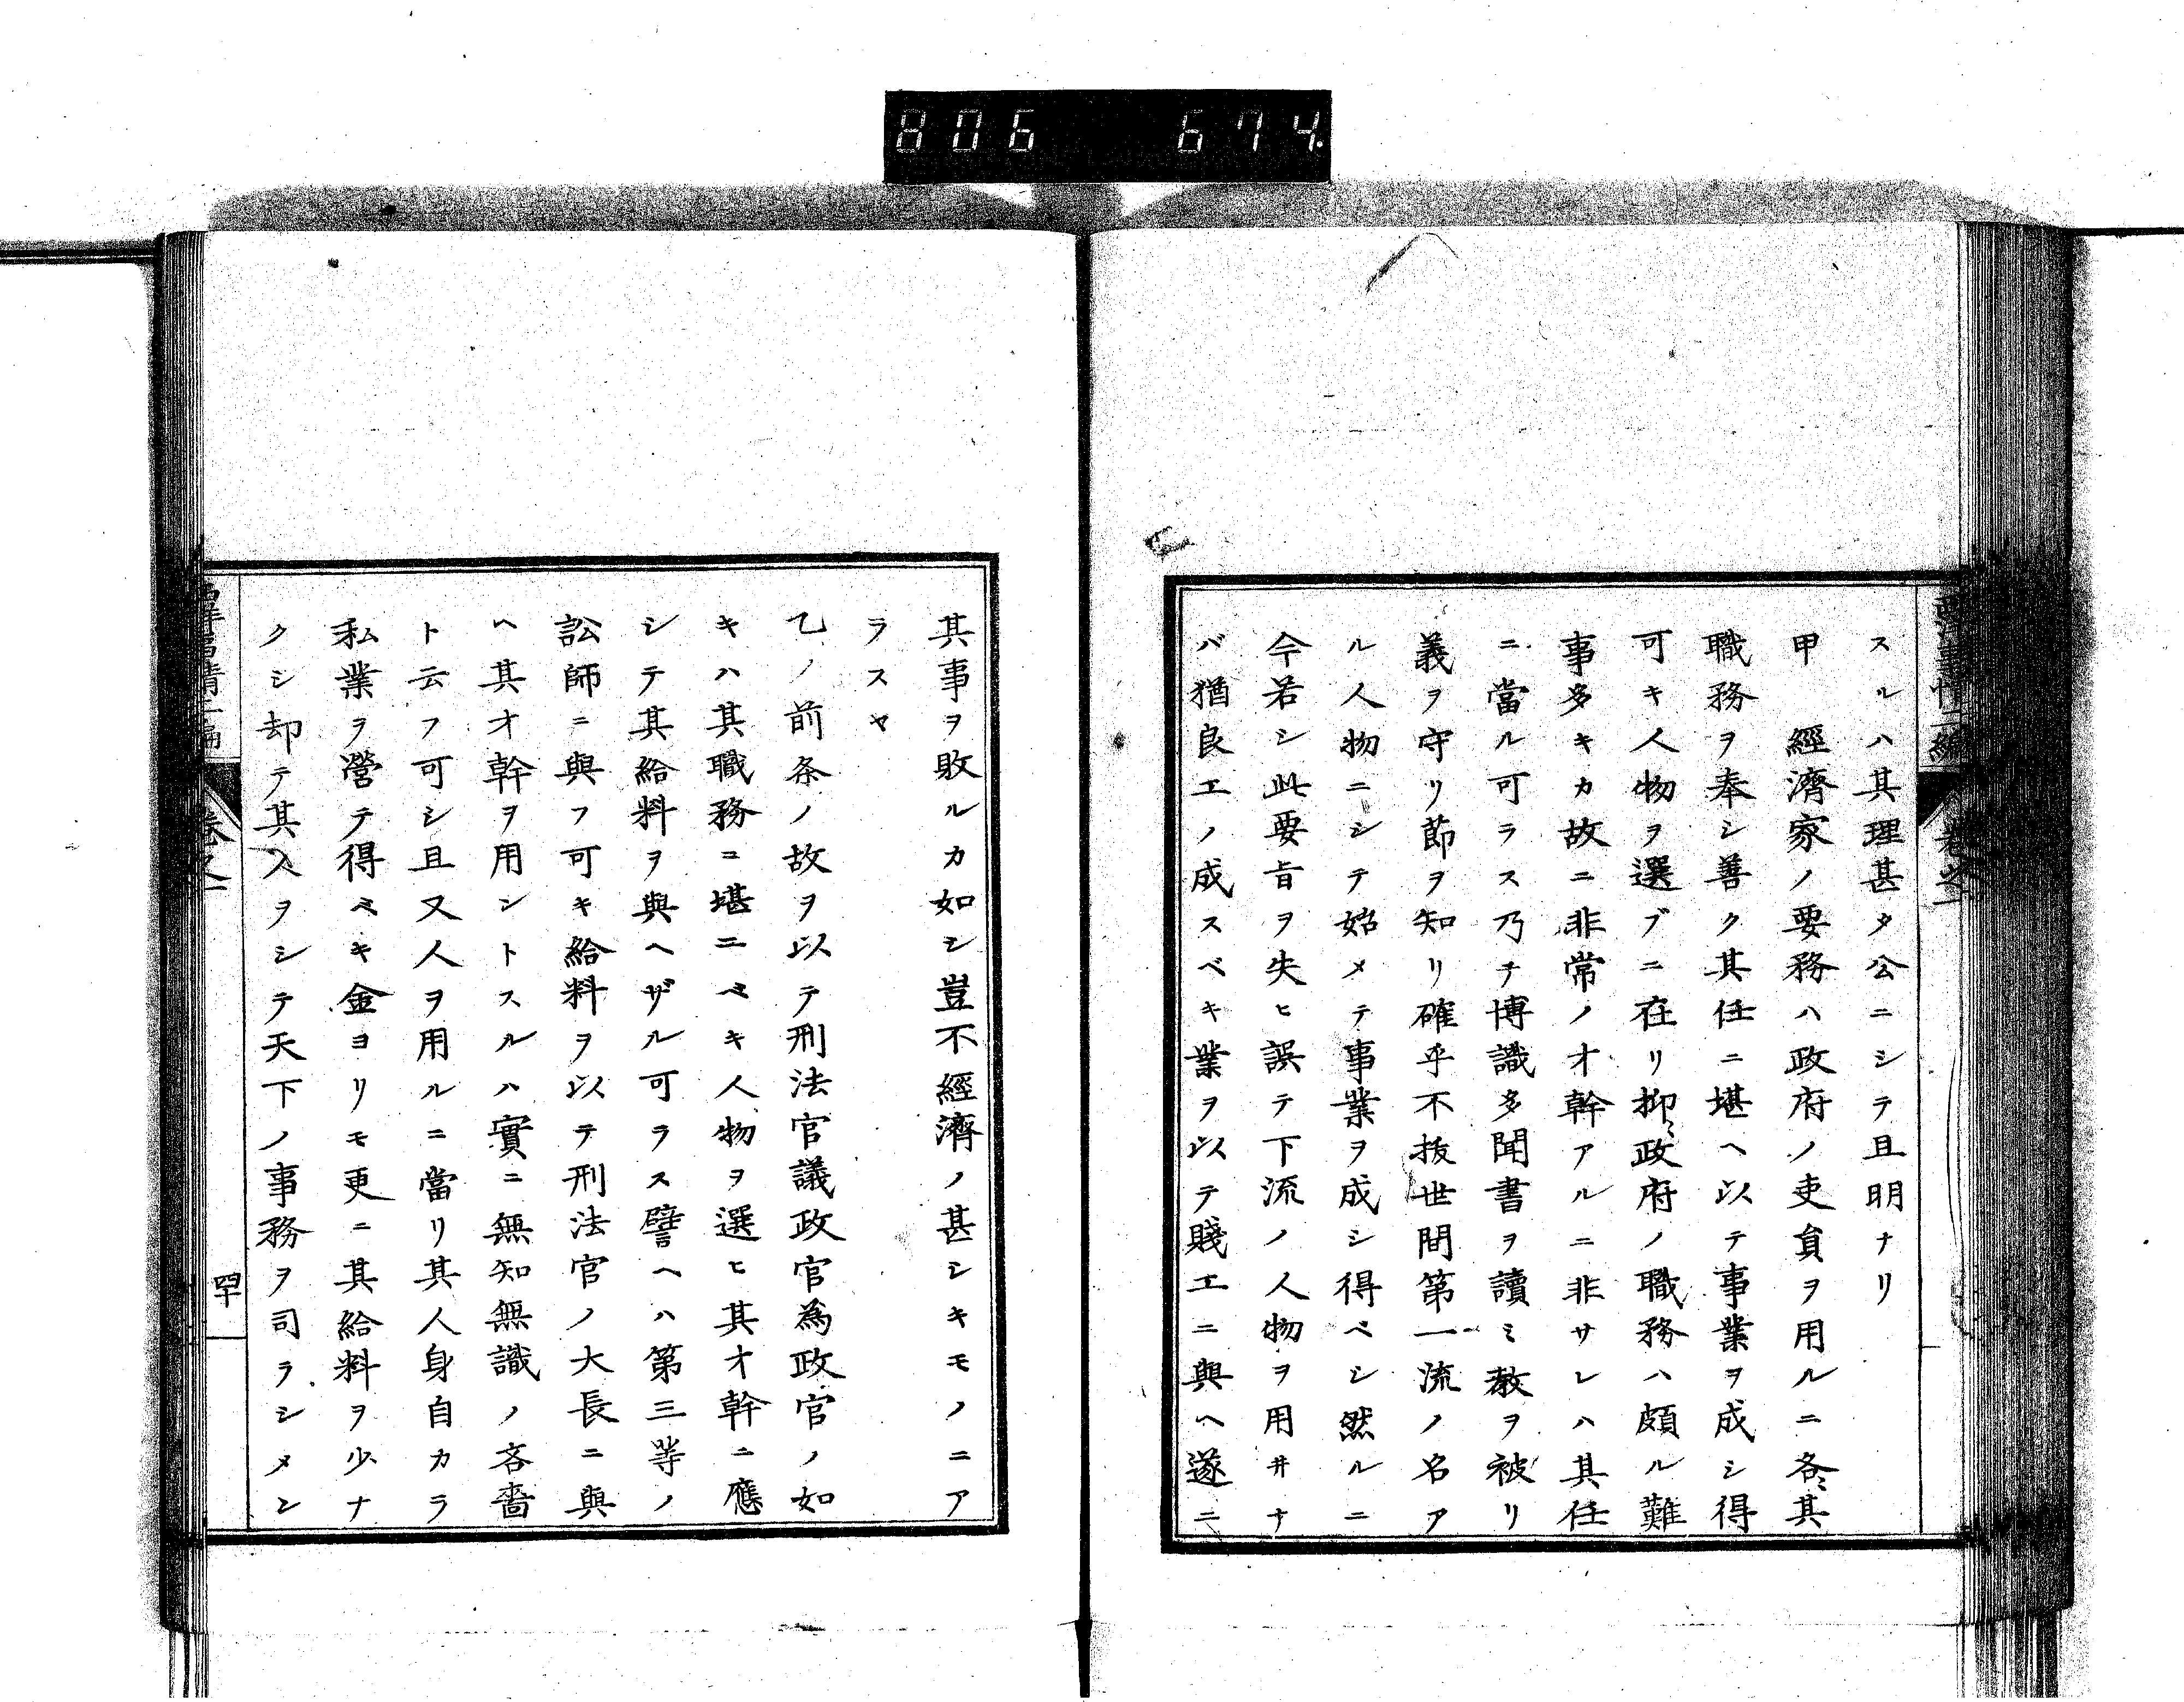 806 674
西洋事情二編 卷之一
スルハ其理甚タ公ニシテ且明ナリ
甲 經濟家ノ要務ハ政府ノ吏員ヲ用ルニ各〻其
職務ヲ奉シ善ク其任ニ堪ヘ以テ事業ヲ成シ得
可キ人物ヲ選ブニ在リ抑〻政府ノ職務ハ頗ル難
事多キカ故ニ非常ノ才幹アルニ非サレハ其任
ニ當ル可ラス乃チ博識多聞書ヲ讀ミ教ヲ被リ
義ヲ守リ節ヲ知リ確乎不拔世間第一流ノ名ア
ル人物ニシテ始メテ事業ヲ成シ得ベシ然ルニ
今若シ此要旨ヲ失ヒ誤テ下流ノ人物ヲ用井ナ
バ猶良工ノ成スベキ業ヲ以テ賤工ニ與ヘ遂ニ
其事ヲ敗ルカ如シ豈不經濟ノ甚シキモノニア
ラスヤ
乙ノ前条ノ故ヲ以テ刑法官議政官為政官ノ如
キハ其職務ニ堪ユベキ人物ヲ選ヒ其才幹ニ應
シテ其給料ヲ與ヘザル可ラス譬ヘハ第三等ノ
訟師ニ與フ可キ給料ヲ以テ刑法官ノ大長ニ與
ヘ其才幹ヲ用ントスルハ實ニ無知無識ノ吝嗇
ト云フ可シ且又人ヲ用ルニ當リ其人身自カラ
私業ヲ營テ得ベキ金ヨリモ更ニ其給料ヲ少ナ
クシ却テ其入ヲシテ天下ノ事務ヲ司ラシメン
西洋事情二編 卷之一